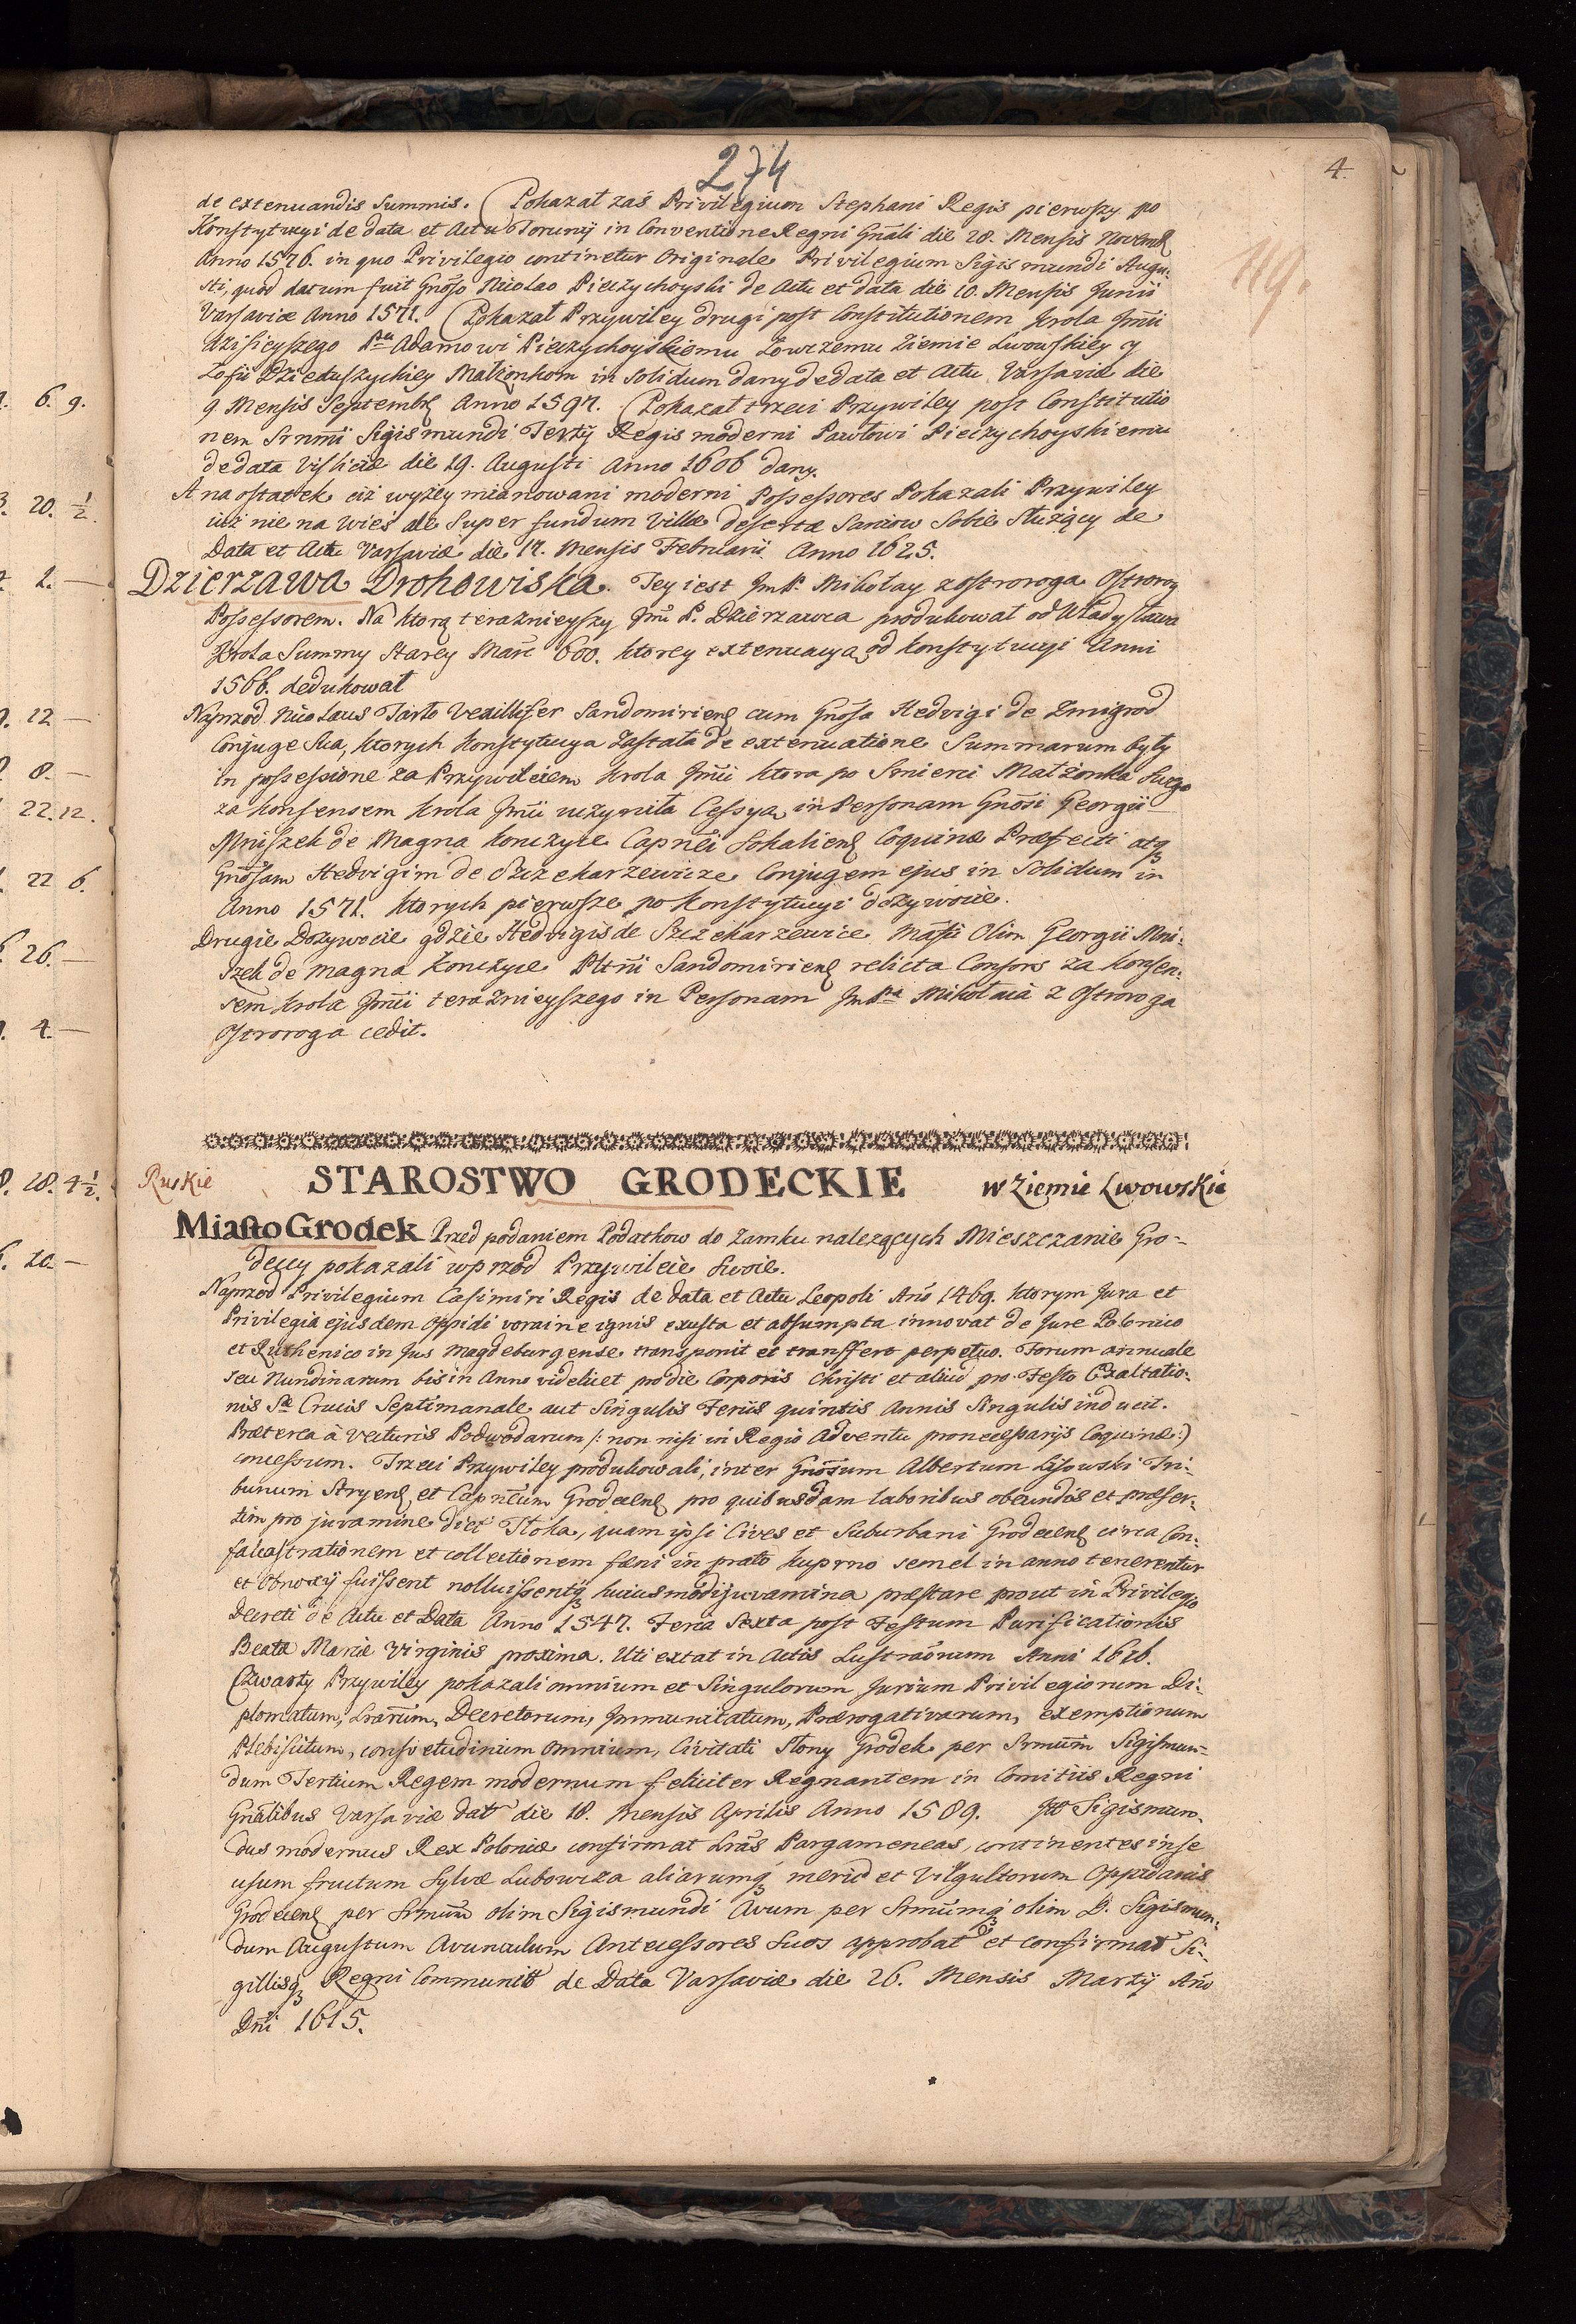 274
4.
119.
de extenuandis Summis. (Pokazał zaś Privilegium Stephani Regis pierwszy po
Konstytucyi de data et Actu Torunij in Conventione Regni Gnāli die 28. Mensis Novemb
Anno 1576. in quo Privilegio continetur Originale Privilegium Sigismundi Augu-
sti, quod datum fuit Gnōso Nicolao Pieczychoyski de Actu et data die 10. Mensis Junii
Varsaviæ Anno 1571. (Pokazał Przywiley drugi post Constitutionem Krola Jmci
dzisieyszego Pnu Adamowi Pieczychoyskiemu Łowczemu Ziemie Lwowskiey y
Zofii Dzieduszyckiey Małżonkom in Solidum dany de data et Actu Varsaviæ die
9 Mensis Septemb Anno 1597. (Pokazał trzeci Przywiley post Constitutio
nem Srnm̄i Sigismundi Tertij Regis moderni Pawłowi Pieczychoyskiemu
de data Visliciæ die 19. Augusti Anno 1606 dany.
A na ostatek ciż wyżey mianowani moderni Possessores Pokazali Przywiley
iuż nie na wieś ale Super fundum Villæ desertæ Saniow Sobie Służący de
Data et Actu Varsaviæ die 17. Mensis Februarii Anno 1625.
Dzierzawa Drohowiska. Tey iest JmP. Mikołay z Ostroroga Ostrorog
Possessorem. Na ktorą teraznieyszy Jmć P. Dzierzawca produkował od Władysława
Krola Summy Starey Marc 600. ktorey extenuacyą od Konstytucyi Anni
1566. dedukował
Naprzod Nicolaus Tarło Vexillifer Sandomirien cum Gnosa Hedvigi de Zmigrod
Conjuge Sua, ktorych Konstytucya Zastała de extenuatione Summarum były
in possessione za Przywileiem Krola Jmci ktora po Smierci Małżonka Swego
za konsensem Krola Jmci uczyniła Cessyą in Personam Gnōsi Georgii
Mniszek de Magna Konczyce Capnēi Sokalien Coquinæ Præfecti atq
Gnōsam Hedvigim de Szczekarzewicze Conjugem ejus in Solidum in
Anno 1571. ktorych pierwsze po Konstytucyi dożywocie.
Drugie Dożywocie gdzie Hedvigis de Szczekarzewice Mgfci Olim Georgii Mni-
szek de Magna Konczyce Pltn̄i Sandomirien relicta Consors za konsen-
sem krola Jmci teraznieyszego in Personam Jm Pna Mikołaia z Ostroroga
Ostroroga cedit.
Ruskie STAROSTWO GRODECKIE w Ziemie Lwowskie
Miasto Grodek Przed podaniem Podatkow do Zamku nalezących Mieszczanie Gro-
deccy pokazali wprzod Przywileie Swoie.
Naprzod Privilegium Casimiri Regis de data et Actu Leopoli Año 1469. ktorym Jura et
Privilegia ejusdem oppidi voraine ignis exusta et absumpta innovat de Jure Polonico
et Ruthenico in Jus Magdeburgense transponit et transfert perpetuo. Forum annuale
seu Nundinarum bis in Anno videlicet pro die Corporis Christi et aliud pro Festo Exaltatio-
nis Sæ Crucis Septimanale aut Singulis Feriis quintis Annis Singulis inducit.
Præterea à vecturis Podwodarum /: non nisi in Regio Adventu pro necessarijs Coquinæ :/
concessum. Trzeci Przywiley produkowali, inter Gnōsum Albertum Lysowski Tri-
bunum Stryen, et Capnēum Grodecen pro quibusdam laboribus obeundis et præser-
tim pro juvamine dict Tłoka, quam ipsi Cives et Suburbani Grodecen circa Con-
falcastrationem et collectionem fæni in prato Kuprno semel in anno tenerentur
et obnoxij fuissent nolluissentq huiusmodi juvamina præstare prout in Privilegio
Decreti de Actu et Data Anno 1547. Feria Sexta post Festum Purificationis
Beatæ Mariæ Virginis proxima. Uti extat in Actis Lustraōnum Anni 1616.
Czwarty Przywiley pokazali omnium et Singulorum Jurium Privilegiorum Di-
plomatum, Lrārum, Decretorum, Jmmunitatum, Prærogativarum, exemptionum
Plebiscitum, consvetudinum omnium, Civitati Słony Grodek per Srmūm Sigismun-
dum Tertium Regem modernum feliciter Regnantem in Comitiis Regni
Gnālibus Varsaviæ dat die 18. Mensis Aprilis Anno 1589. Jtt Sigismun-
dus modernus Rex Poloniæ confirmat Lrās Pargameneas, continentes in se
usum fructum Sylvæ Lubowiza aliarumq meric et Virgultorum Oppidanis
Grodecen per Srmūm olim Sigismundi Avum per Srmūmq olim D. Sigismun-
dum Augustum Avunculum Antecessores Suos approbat et confirmat Si-
gillisq Regni Communitt de Data Varsaviæ die 26. Mensis Martij Año
Dn̄i 1615.
6. 9.
20. ½.
2. —
12 —
8. —
22. 12.
22 6.
26. —
4. —
18. 4½.
20. —